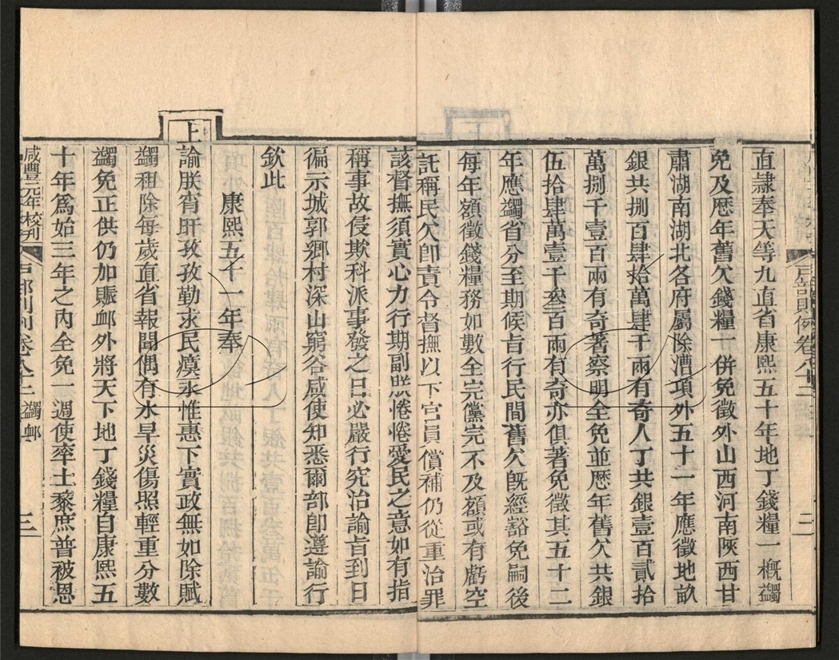 直隷奉天等九直省康熙五十年地丁錢糧一槪蠲
免及歴年舊欠錢糧一併免徵外山西河南陝西甘
肅湖南湖北各府屬除漕項外五十一年應徵地畝
銀共捌百肆拾萬肆千兩有奇人丁共銀壹百貳拾
萬捌千壹百兩有奇著察明全免並歴年舊欠共銀
伍拾肆萬壹千叁百兩有奇亦俱著免徵其五十二
年應蠲省分至期候㫖行民間舊欠旣經豁免嗣後
每年額徵錢糧務如數全完儻完不及額或有虧空
託稱民欠卽責令督撫以下官員償補仍從重治罪
該督撫須實心力行期副朕惓惓愛民之意如有指
稱事故侵欺科派事發之日必嚴行究治諭㫖到日
徧示城郭鄉村深山窮谷咸使知悉爾部卽遵諭行
欽此
康熙五十一年奉
上
諭朕宵旰孜孜勤求民瘼永惟惠下實政無如除賦
蠲租除每歲直省報聞偶有水旱災傷照輕重分數
蠲免正供仍加賑䘏外將天下地丁錢糧自康熙五
十年爲始三年之內全免一週使率土黎庶普被恩
咸豐元年校刋
戸部則例卷八十三 蠲䘏
三